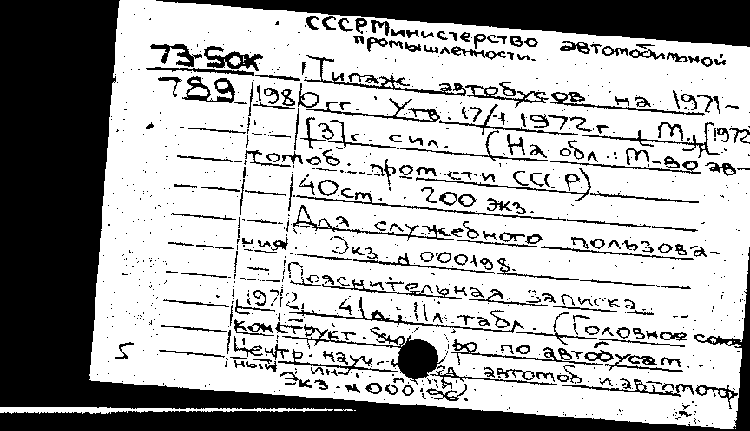 СССР. Министерство автомобильной
промышленности.
73-50к
Типаж автобусов на 1971-
789
1980гг. Утв. 17/ 1972г. М., [1972
[3]с. сил. (На обл.: М-во ав-
томоб. пром-сти СССР)
40см. 200 экз.
Для служебного пользова-
ния Экз. № 000198.
— Пояснительная записка.
[1972]. 41л.; 11л. табл. (Головное союз
конструкт. бюро по автобусам
Центр. науч- автомоб. и автомотор
ный ин
5
Экз. № 000196.